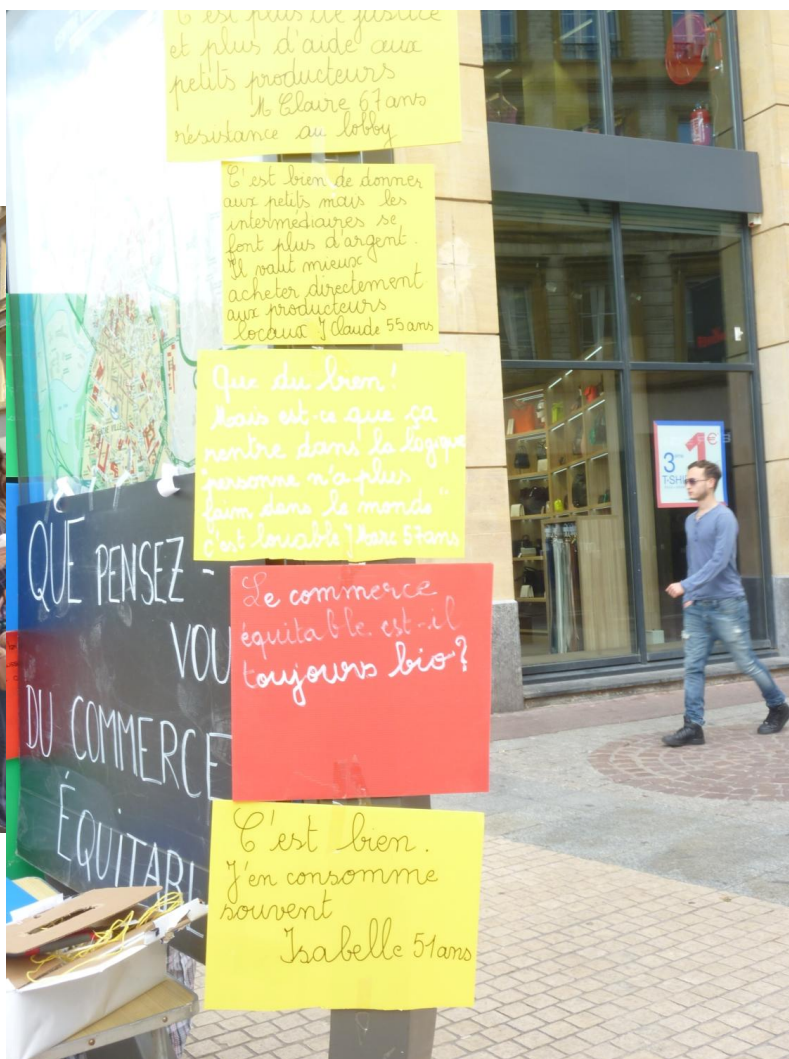 C'est plus de justice
et plus d'aide aux
petits producteurs
M Claire 67 ans
résistance au lobby
C'est bien de donner
aux petits mais les
intermédiaires se
font plus d'argent.
Il vaut mieux
acheter directement
aux producteurs
locaux J Claude 55 ans
Que du bien!
Mais est-ce que ça
rentre dans la logique
"personne n'a plus
faim dans le monde"
c'est louable J Marc 57 ans
Le commerce
équitable est-il
toujours bio?
C'est bien.
J'en consomme
souvent
Isabelle 51 ans
QUE PENSEZ-
VOU
DU COMMERCE
ÉQUITABL
3
1€
T-SHI